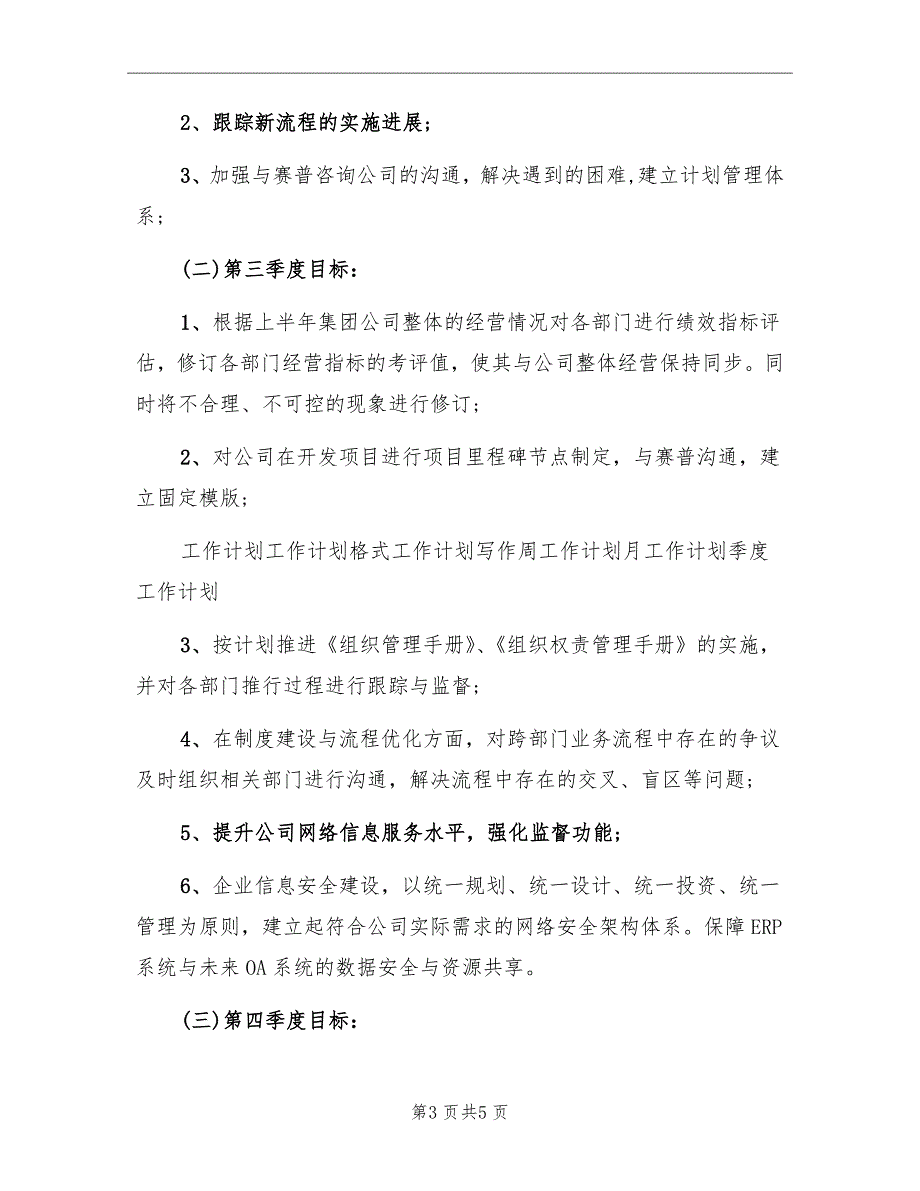 2、跟踪新流程的实施进展;
3、加强与赛普咨询公司的沟通，解决遇到的困难,建立计划管理体
系;
(二)第三季度目标：
1、根据上半年集团公司整体的经营情况对各部门进行绩效指标评
估，修订各部门经营指标的考评值，使其与公司整体经营保持同步。同
时将不合理、不可控的现象进行修订;
2、对公司在开发项目进行项目里程碑节点制定，与赛普沟通，建
立固定模版;
工作计划工作计划格式工作计划写作周工作计划月工作计划季度
工作计划
3、按计划推进《组织管理手册》、《组织权责管理手册》的实施，
并对各部门推行过程进行跟踪与监督;
4、在制度建设与流程优化方面，对跨部门业务流程中存在的争议
及时组织相关部门进行沟通，解决流程中存在的交叉、盲区等问题;
5、提升公司网络信息服务水平，强化监督功能;
6、企业信息安全建设，以统一规划、统一设计、统一投资、统一
管理为原则，建立起符合公司实际需求的网络安全架构体系。保障 ERP
系统与未来 OA 系统的数据安全与资源共享。
(三)第四季度目标：
第3 页共5 页